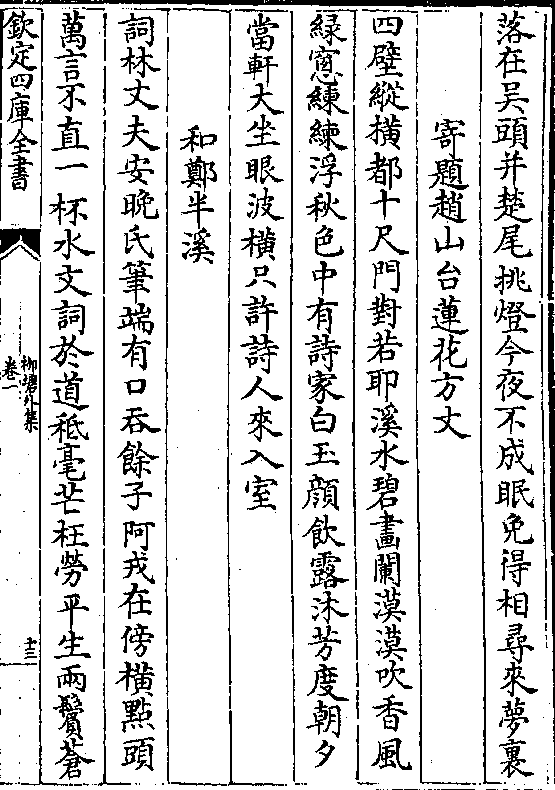 落在吴頭并楚尾挑燈今夜不成眠免得相尋來夢裏
寄題趙山台蓮花方丈
四壁縱横都十尺門對若耶溪水碧畫闌漠漠吹香風
緑窻練練浮秋色中有詩家白玉顔飲露沐芳度朝夕
當軒大坐眼波横只許詩人來入室
和鄭半溪
詞林丈夫安晩氏筆端有口吞餘子阿戎在傍横點頭
萬言不直一杯水文詞於道秪毫芒枉勞平生兩鬢蒼
欽定四庫全書
柳塘外集
卷一
十三